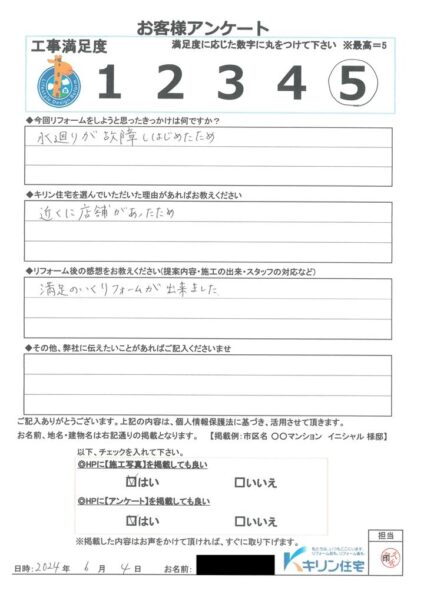 お客様アンケート
工事満足度
満足度に応じた数字に丸をつけて下さい ※最高=5
1 2 3 4 5
◆今回リフォームをしようと思ったきっかけは何ですか?
水廻りが故障しはじめたため
◆キリン住宅を選んでいただいた理由があればお教えください
近くに店舗があったため
◆リフォーム後の感想をお教えください(提案内容・施工の出来・スタッフの対応など)
満足のいくリフォームが出来ました
◆その他、弊社に伝えたいことがあればご記入くださいませ
ご記入ありがとうございます。上記の内容は、個人情報保護法に基づき、活用させて頂きます。
お名前、地名・建物名は右記通りの掲載となります。 【掲載例:市区名 〇〇マンション イニシャル 様邸】
以下、チェックを入れて下さい。
◎HPに【施工写真】を掲載しても良い
☑はい □いいえ
◎HPに【アンケート】を掲載しても良い
☑はい □いいえ
※掲載した内容はお声をかけて頂ければ、すぐに取り下げます。
担当
日時:2024年 6月 4日 お名前:
キリン住宅